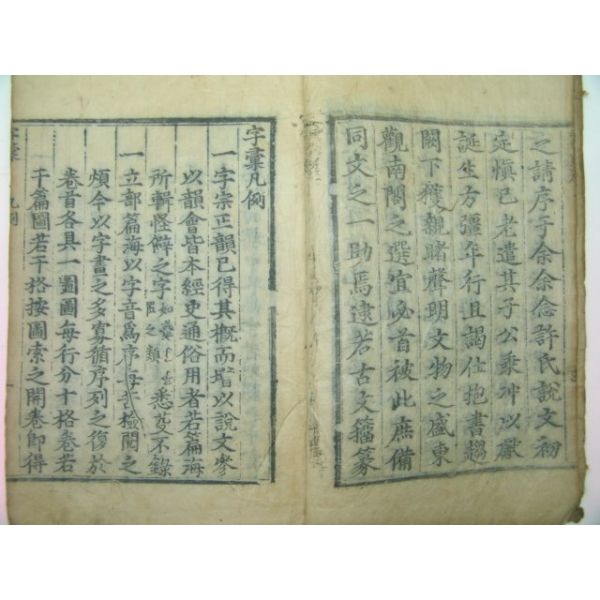 之請序于余余念許氏說文初
定愼已老遣其子公乘冲以獻
誕生方彊年行且謁仕抱書趨
闕下獲親睹聲明文物之盛東
觀南閣之選宜必首彼此庶備
同文之一助焉逮若古文籒篆
字彙凡例
一字宗正韻已得其槪而增以說文參
以韻會皆本經史通俗用者若篇海
所輯怪僻之字
之類
悉芟不錄
一立部篇海以字音爲序每苦檢閱之
煩今以字畫之多寡循序列之復於
卷首各具一圖圖每行分十格卷若
干篇圖若干格按圖索之開卷即得
字彙
凡例